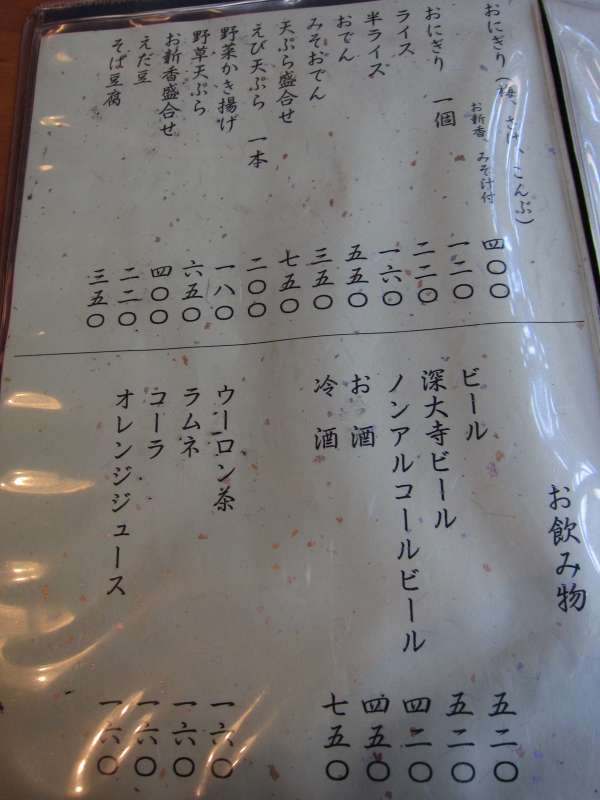 おにぎり(梅、さけ、こんぶ) 四〇〇
お新香、みそ汁付
おにぎり 一個 一二〇
ライス 二二〇
半ライス 一六〇
おでん 五五〇
みそおでん 三五〇
天ぷら盛合せ 七五〇
えび天ぷら 一本 二〇〇
野菜かき揚げ 一八〇
野草天ぷら 六五〇
お新香盛合せ 四〇〇
えだ豆 二二〇
そば豆腐 三五〇
お飲み物
ビール 五二〇
深大寺ビール 五二〇
ノンアルコールビール 四二〇
お酒 四五〇
冷酒 七五〇
ウーロン茶 一六〇
ラムネ 一六〇
コーラ 一六〇
オレンジジュース 一六〇